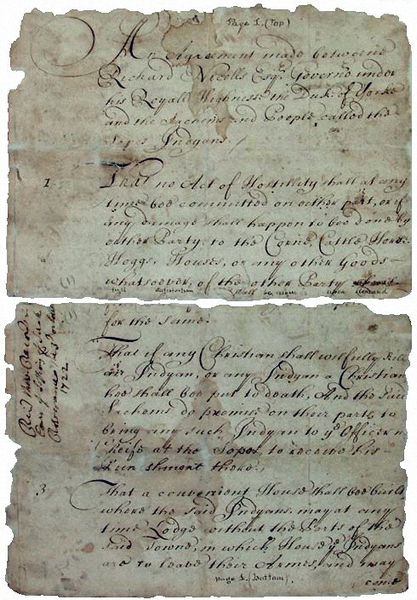 Page 1. (Top)
An Agreement made betweene
Richard Nicolls Esqr. Governor under
his Royall Highnesse the Duke of Yorke
and the Sachems and People called the
Sopes Indyans.
1 That no Act of Hostillity shall at any
time bee committed on either part, or if
any damage shall happen to bee done by
either Party, to the Corne, Cattle Horses
Hoggs, Houses, or any other Goods
whatsoever, of the other Party
full satisfaction shall be given upon demand
for the same.
That if any Christian shall wilfully kill
any Indyan, or any Indyan a Christian
hee shall bee put to Death. And the said
Sachems do promise on their parts, to
bring any such Indyan to ye Officer in
Cheife at the Sopes, to receive his
Punishment there.
3 That a convenient House shall bee built
where the said Indyans, may at any
time Lodge without the Ports of the
said Towne, in which House ye Indyans
are to leave their Armes, and may
come
page 1. bottom
1722